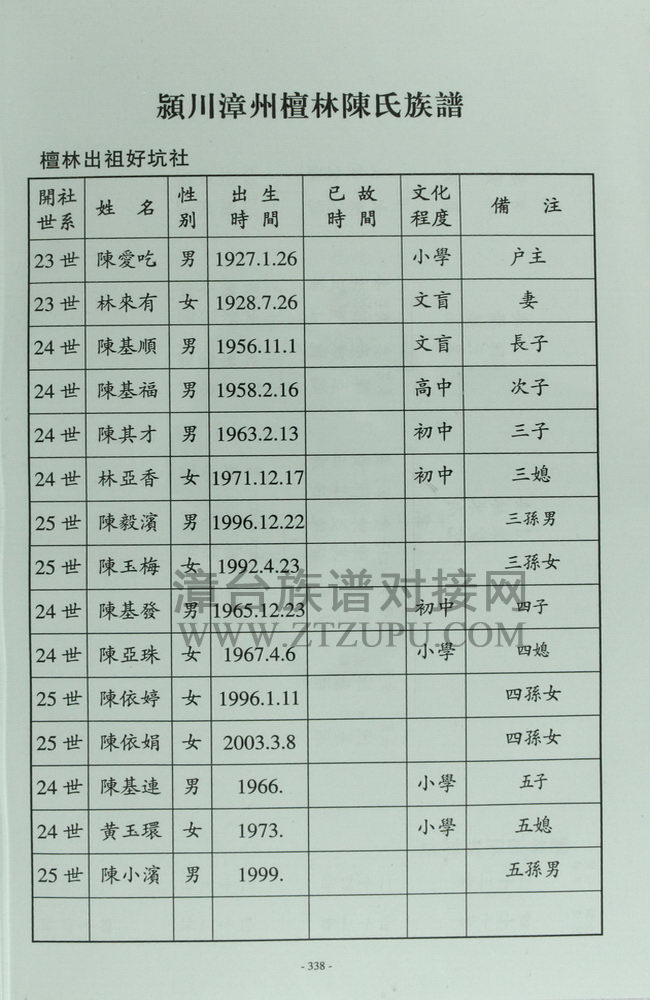 潁川漳州檀林陳氏族譜
檀林出祖好坑社
開社世系 姓名 性别 出生時間 已故時間 文化程度 備注
23世 陳愛吃 男 1927.1.26 小學 户主
23世 林來有 女 1928.7.26 文盲 妻
24世 陳基順 男 1956.11.1 文盲 長子
24世 陳基福 男 1958.2.16 高中 次子
24世 陳其才 男 1963.2.13 初中 三子
24世 林亞香 女 1971.12.17 初中 三媳
25世 陳毅濱 男 1996.12.22 三孫男
25世 陳玉梅 女 1992.4.23 三孫女
漳台族谱对接网
24世 陳基發 男 1965.12.23 初中 四子
WWW.ZTZUPU.COM
24世 陳亞珠 女 1967.4.6 小學 四媳
25世 陳依婷 女 1996.1.11 四孫女
25世 陳依娟 女 2003.3.8 四孫女
24世 陳基連 男 1966. 小學 五子
24世 黄玉環 女 1973. 小學 五媳
25世 陳小濱 男 1999. 五孫男
- 338 -